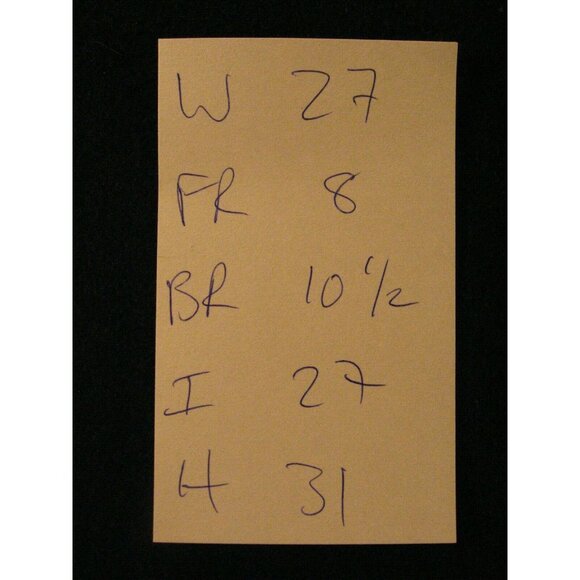 W 27
FR 8
BR 10 1/2
I 27
H 31